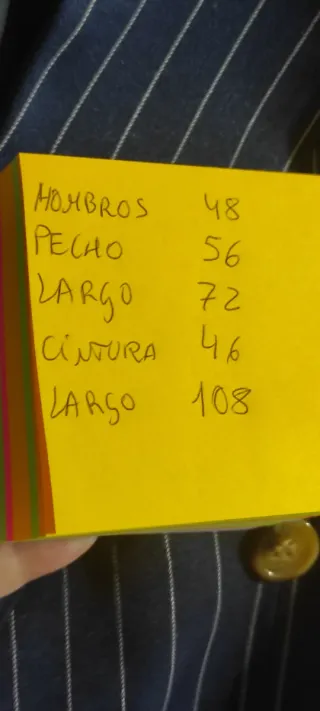 HOMBROS 48
PECHO 56
LARGO 72
CiNTURA 46
LARGO 108